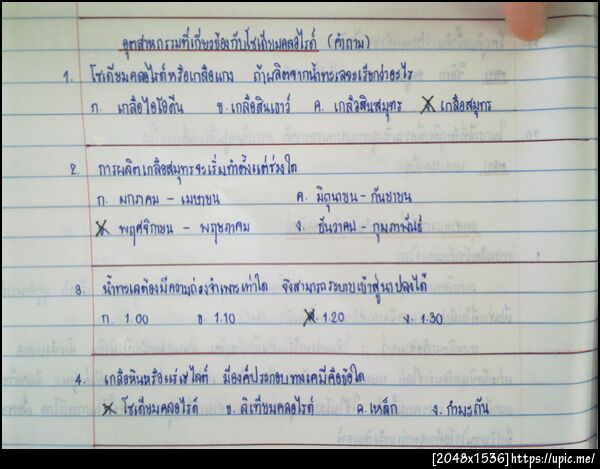 อุตสาหกรรมที่เกี่ยวข้องกับโซเดียมคลอไรด์ (คำถาม)
1. โซเดียมคลอไรด์หรือเกลือแกง ถ้าผลิตจากน้ำทะเลจะเรียกว่าอะไร
ก. เกลือไอโอดีน ข. เกลือสินเธาว์ ค. เกลือสินสมุทร เกลือสมุทร
2. การผลิตเกลือสมุทรจะเริ่มทำตั้งแต่ช่วงใด
ก. มกราคม - เมษายน ค. มิถุนายน - กันยายน
พฤศจิกายน - พฤษภาคม ง. ธันวาคม - กุมภาพันธ์
3. น้ำทะเลต้องมีความถ่วงจำเพาะเท่าใด จึงสามารถระบายเข้าสู่นาปลงได้
ก. 1.00 ข. 1.10 ค. 1.20 ง. 1.30
4. เกลือหินหรือแร่เฮไลต์ มีองค์ประกอบทางเคมีคือข้อใด
โซเดียมคลอไรด์ ข. ลิเทียมคลอไรด์ ค. เหล็ก ง. กำมะถัน
[2048x1536]https://upic.me/